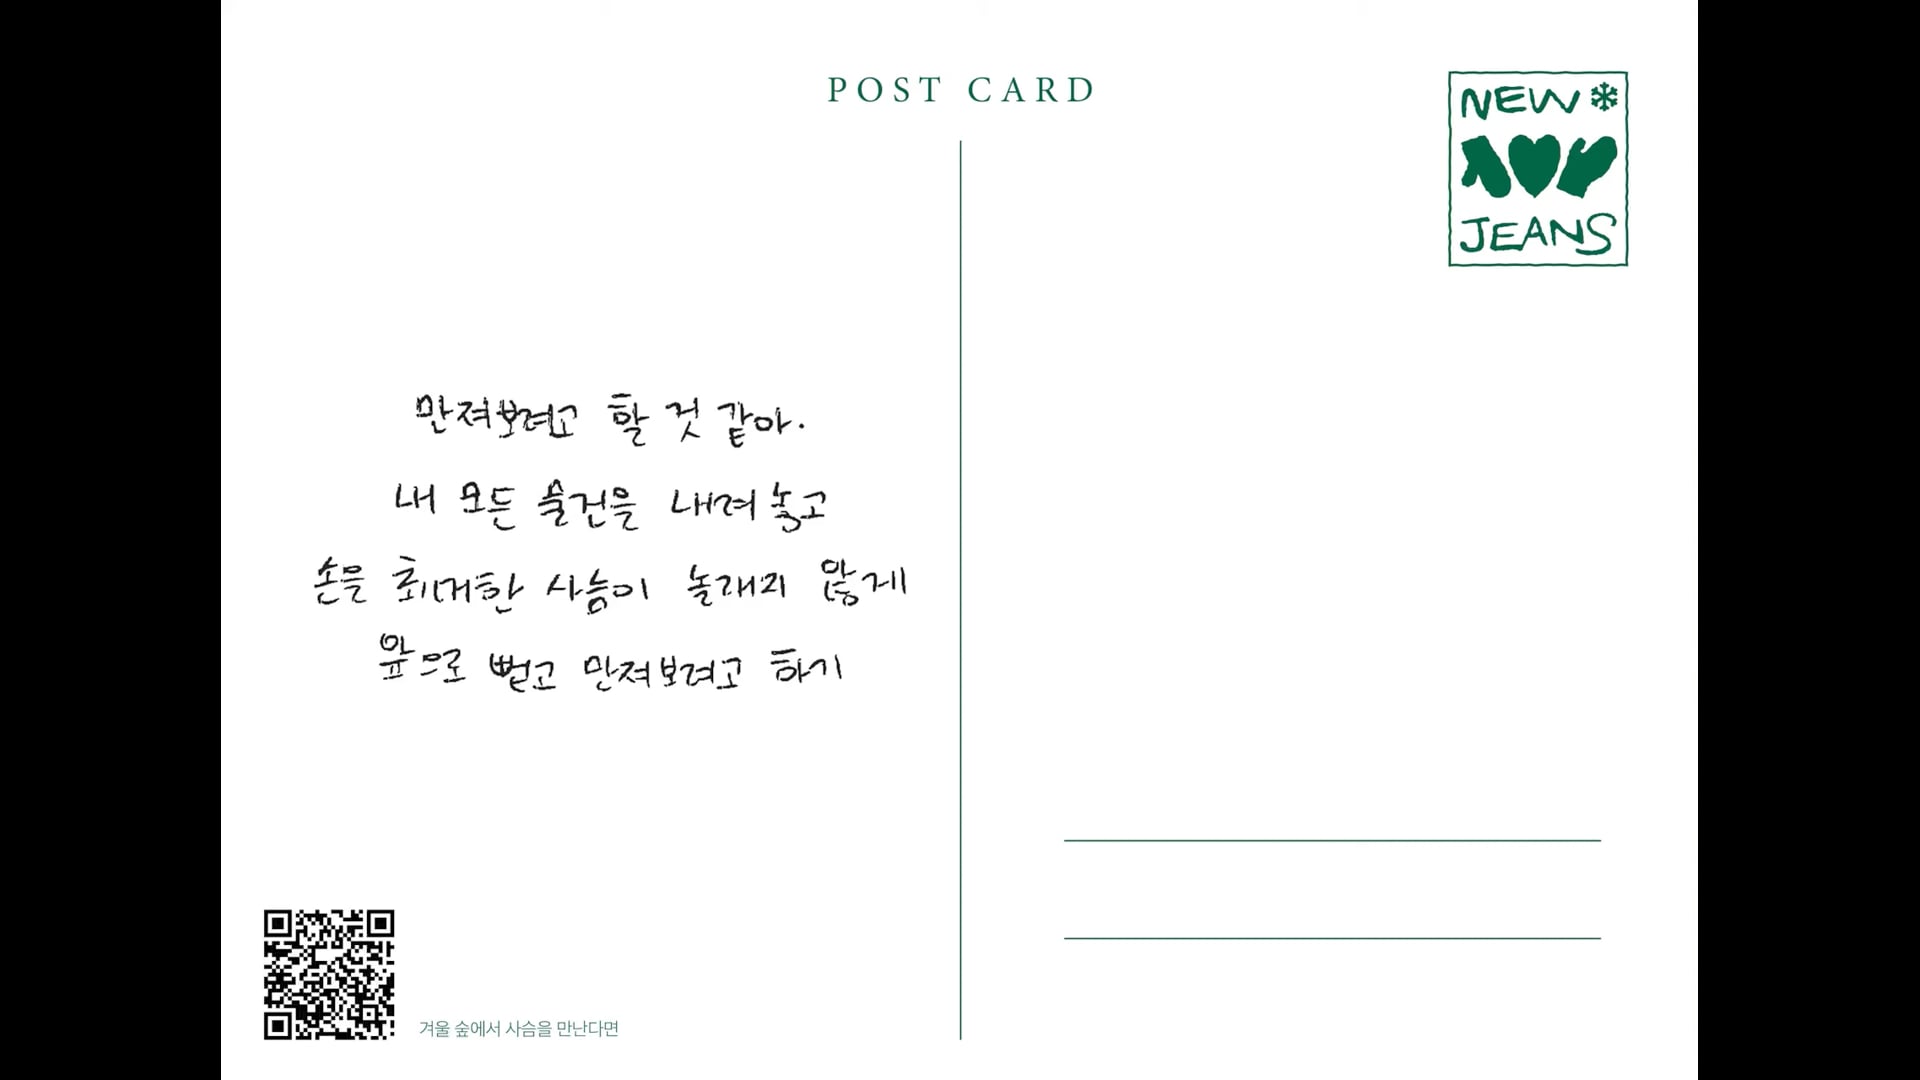 POST CARD
NEW
JEANS
만져보려고 할 것 같아.
내 모든 물건을 내려놓고
손을 최대한 사슴이 놀래지 않게
앞으로 뻗고 만져보려고 하기
겨울 숲에서 사슴을 만난다면